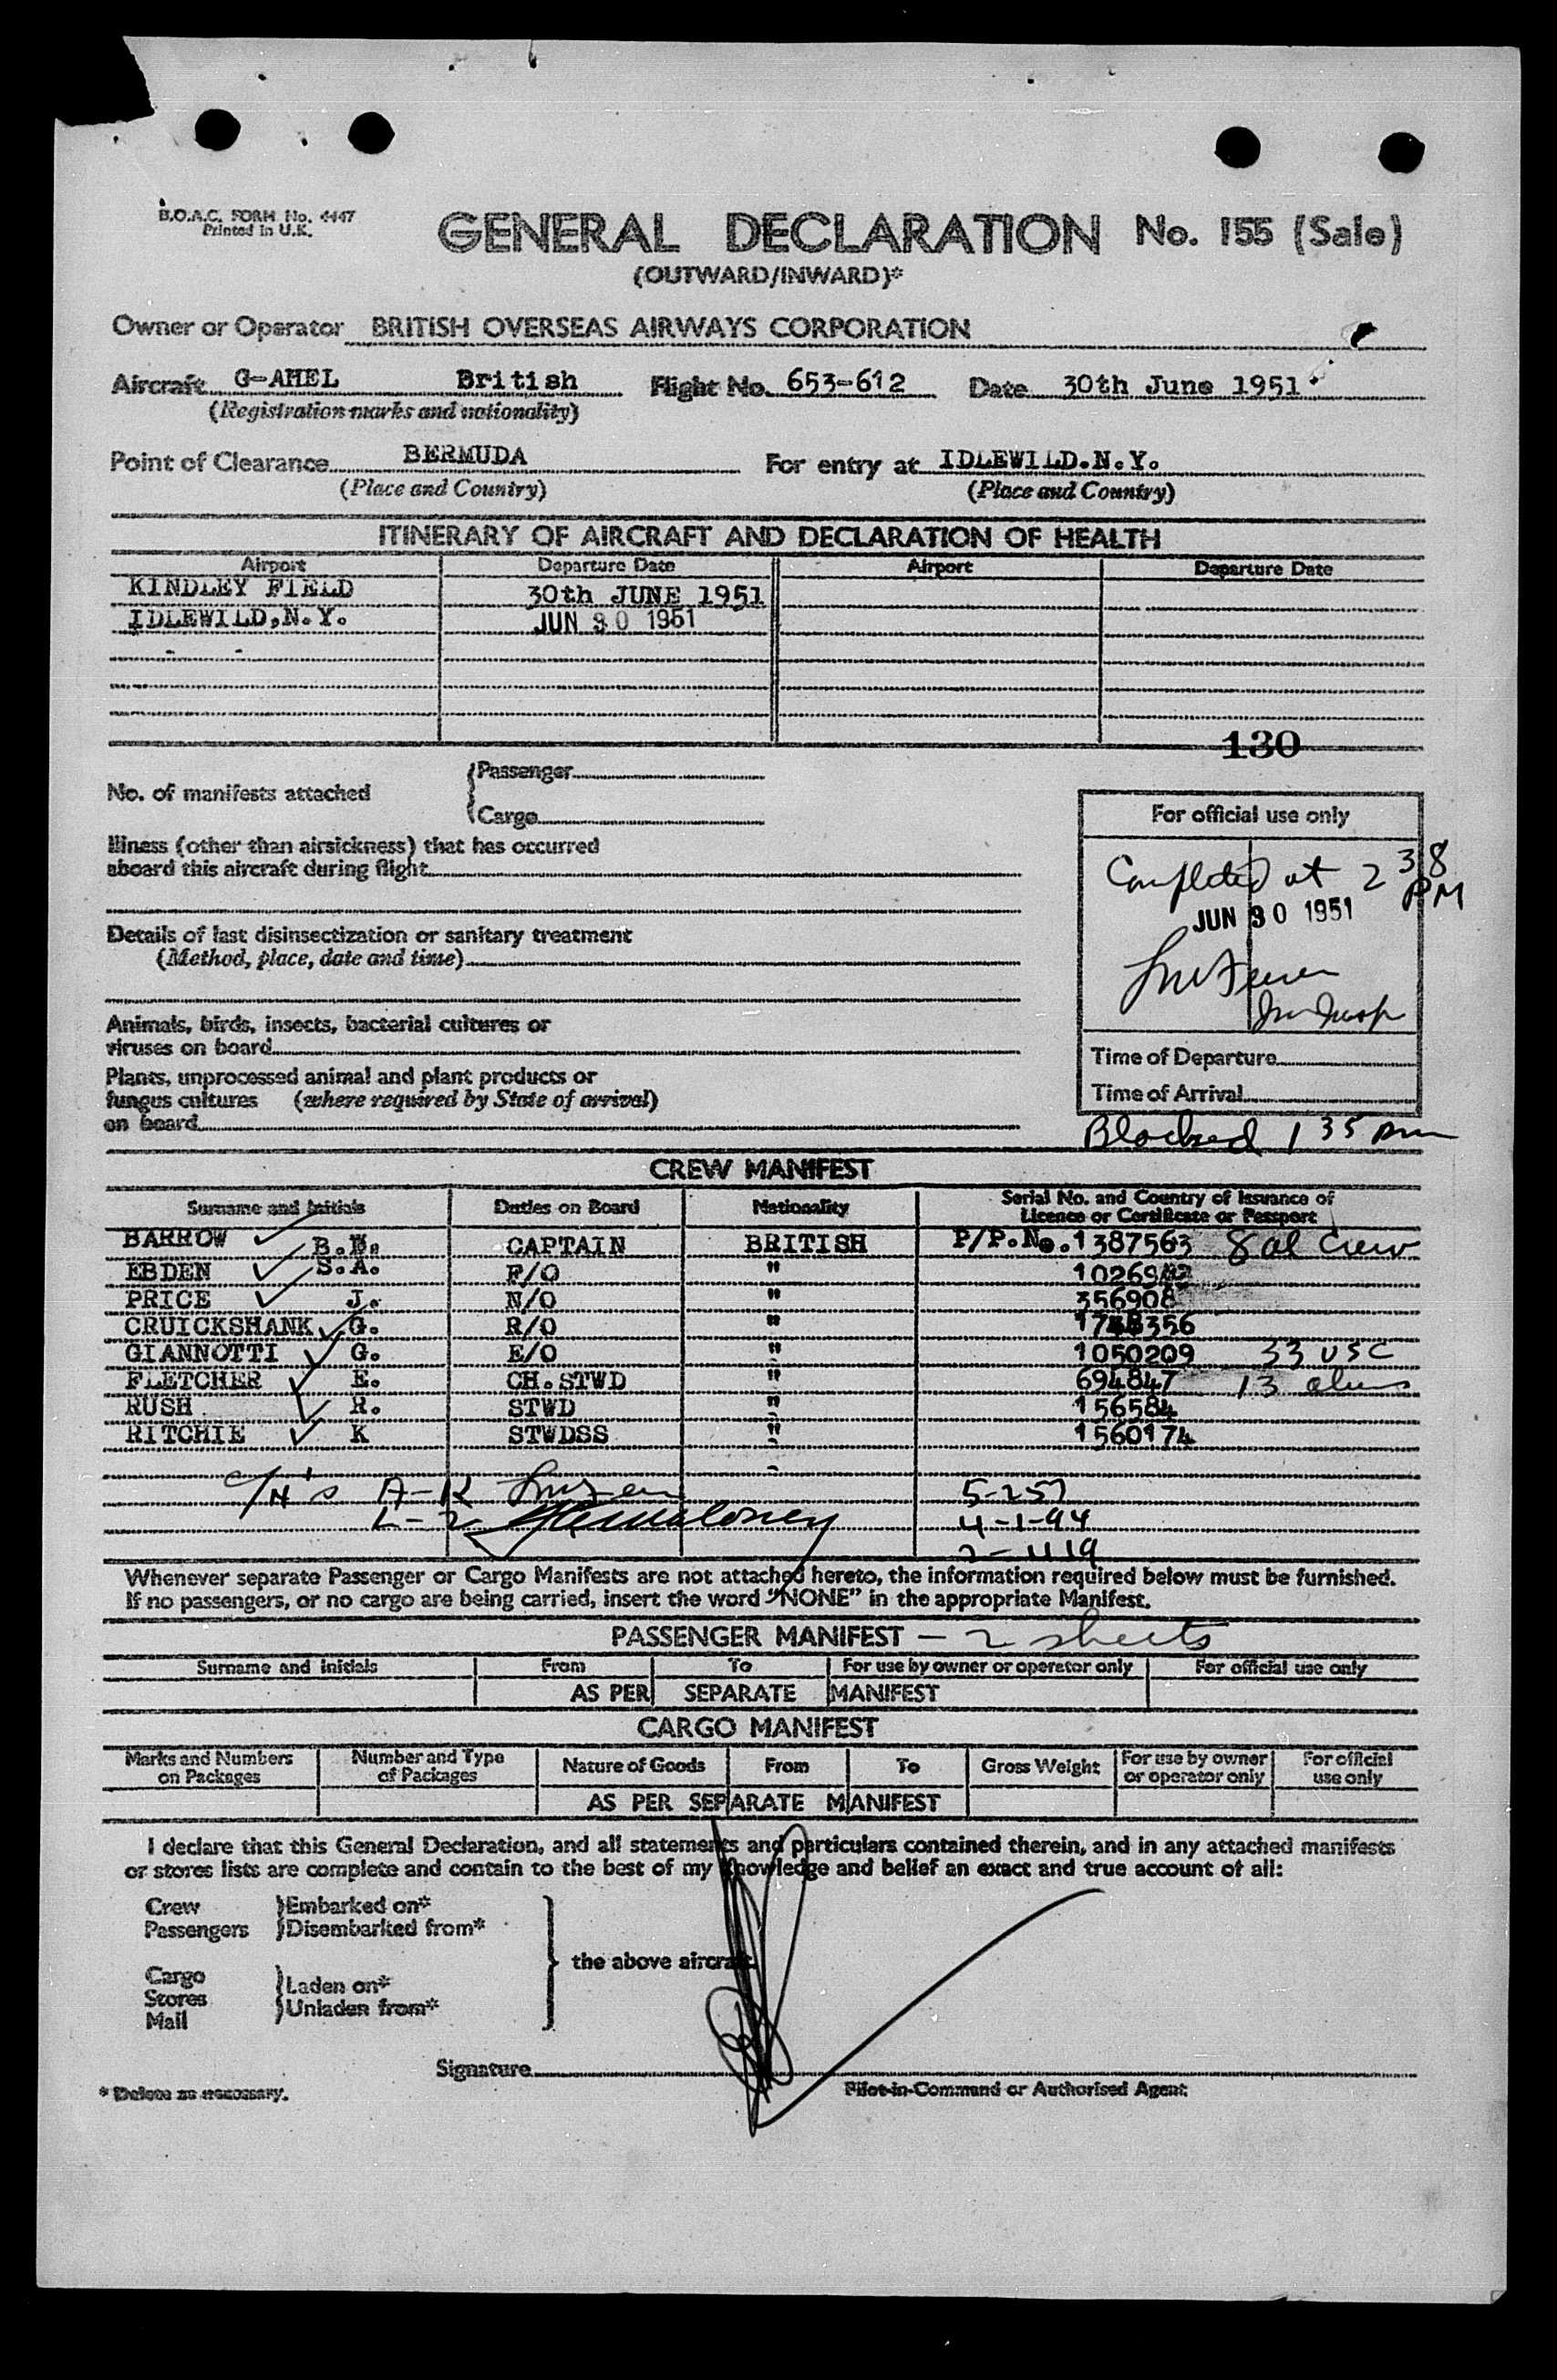 B.O.A.C. FORM No. 4447
Printed in U.K.
GENERAL DECLARATION No. 155 (Sale)
(OUTWARD/INWARD)*
Owner or Operator BRITISH OVERSEAS AIRWAYS CORPORATION
Aircraft G-AHEL British Flight No. 653-612 Date 30th June 1951
(Registration marks and nationality)
Point of Clearance BERMUDA For entry at IDLEWILD.N.Y.
(Place and Country) (Place and Country)
ITINERARY OF AIRCRAFT AND DECLARATION OF HEALTH
Airport Departure Date Airport Departure Date
KINDLEY FIELD 30th JUNE 1951
IDLEWILD,N.Y. JUN 30 1951
130
No. of manifests attached {Passenger
{Cargo
Illness (other than airsickness) that has occurred
aboard this aircraft during flight
Details of last disinsectization or sanitary treatment
(Method, place, date and time)
Animals, birds, insects, bacterial cultures or
viruses on board
Plants, unprocessed animal and plant products or
fungus cultures (where required by State of arrival)
on board
For official use only
Completed at 2 38 PM
JUN 30 1951
Time of Departure
Time of Arrival
Blocked 1 35 pm
CREW MANIFEST
Surname and Initials Duties on Board Nationality Serial No. and Country of Issuance of
Licence or Certificate or Passport
BARROW B.W. CAPTAIN BRITISH P/P.No.1387563 8 al Crew
EBDEN S.A. F/O " 1026982
PRICE J. N/O " 356908
CRUICKSHANK G. R/O " 356
GIANNOTTI G. E/O " 1050209 33 USC
FLETCHER E. CH.STWD " 694847 13 aliens
RUSH R. STWD " 156584
RITCHIE K STWDSS " 1560174
C/H's A-K 5-257
L-Z 4-1-94
2-1119
Whenever separate Passenger or Cargo Manifests are not attached hereto, the information required below must be furnished.
If no passengers, or no cargo are being carried, insert the word "NONE" in the appropriate Manifest.
PASSENGER MANIFEST – 2 sheets
Surname and Initials From To For use by owner or operator only For official use only
AS PER SEPARATE MANIFEST
CARGO MANIFEST
Marks and Numbers on Packages Number and Type of Packages Nature of Goods From To Gross Weight For use by owner or operator only For official use only
AS PER SEPARATE MANIFEST
I declare that this General Declaration, and all statements and particulars contained therein, and in any attached manifests
or stores lists are complete and contain to the best of my knowledge and belief an exact and true account of all:
Crew }Embarked on*
Passengers }Disembarked from*
the above aircraft.
Cargo
Stores }Laden on*
Mail }Unladen from*
Signature
* Delete as necessary. Pilot-in-Command or Authorised Agent